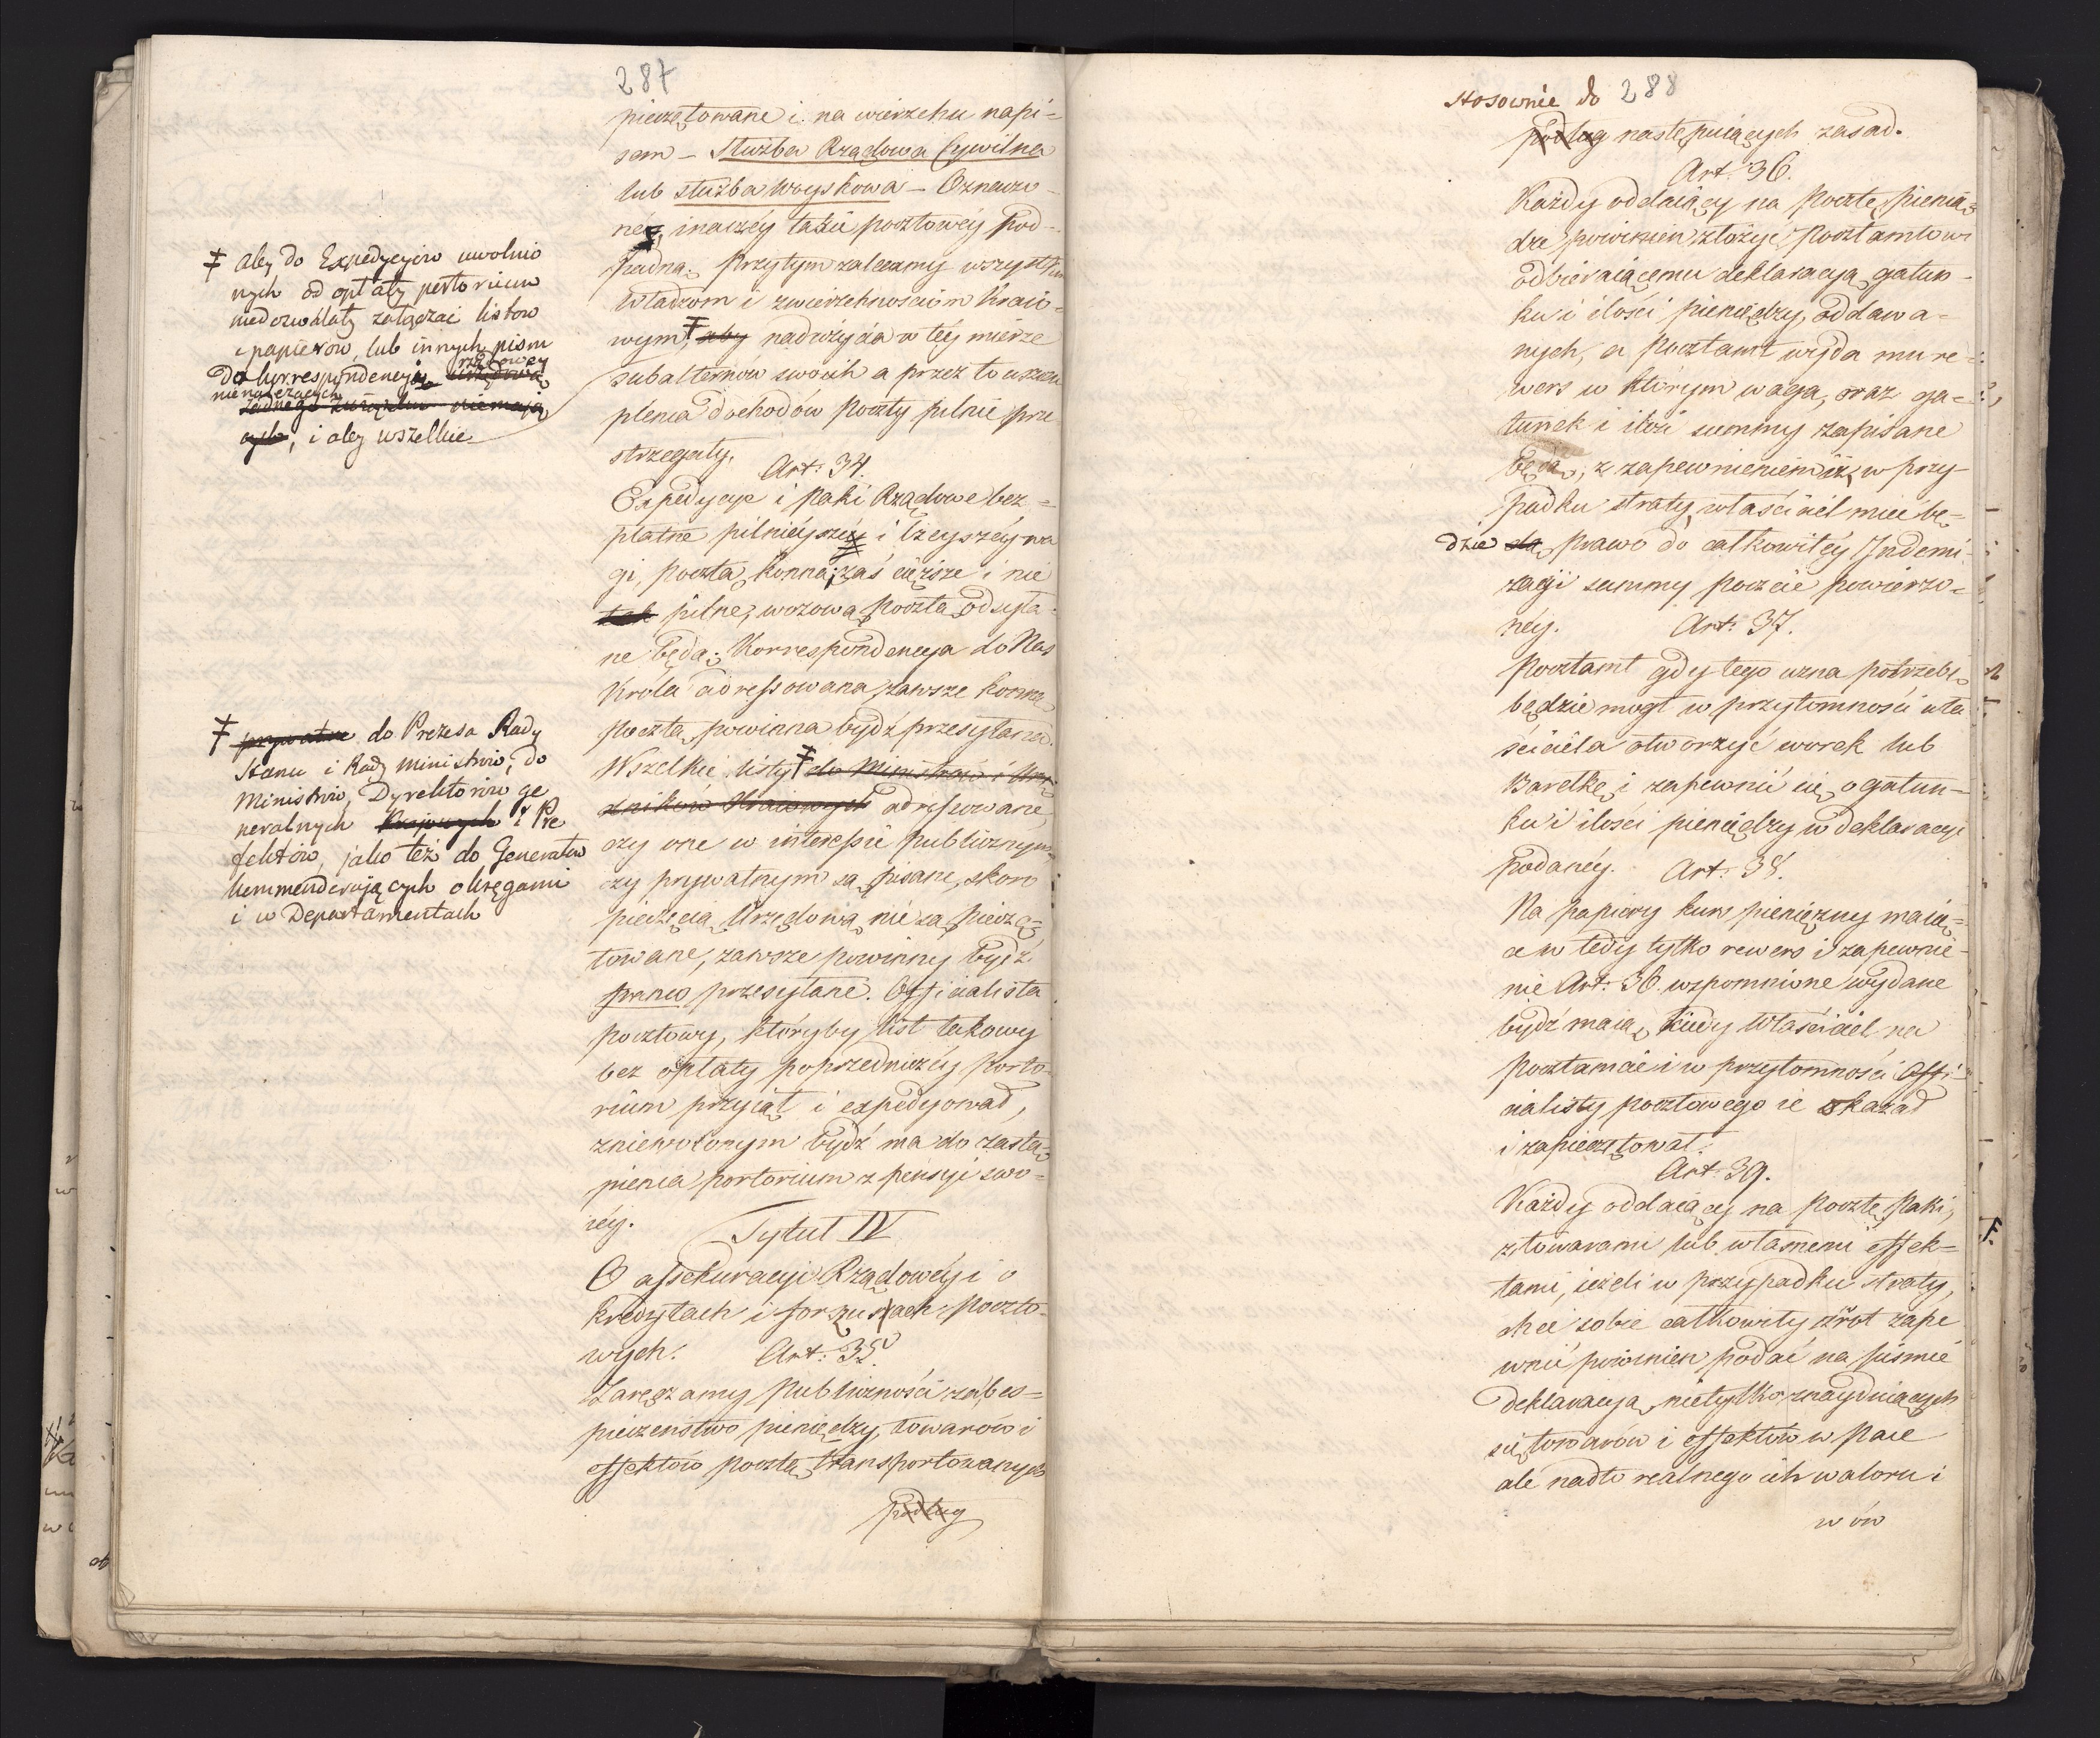 287
pieczętowane i na wierzchu napi=
sem – Służba Rządowa Cywilna
lub służba Woyskowa – Oznaczo-
néz, inaczéy taxie pocztowéy pod-
padną. Przytym zalecamy wszystkim
Władzom i zwierzchnościom Kraio-
wym ǂ, aby nadużycia w téy mierze
subalternów swoich a przez to uszczu
plenia dochodów Poczty pilnie prze
strzegały.
Art: 34.
Expedycye i Paki Rządowe bez=
płatne pilnieyszéy i lżeyszéy wa
gi, pocztą konną; zaś cięższe i nie
tak pilne, wozową Pocztą odsyła-
ne będą; Korrespondencya do Nas
Króla adressowana, zawsze konną
Pocztą, powinna bydź przesyłana.
Wszelkie listy ǂ do Ministrów i Urzę
dników Kraiowych adressowane,
czy one w interessie publicznym
czy prywatnym są pisane, skoro
pieczęcią Urzędową nie są pieczę=
towane, zawsze powinny bydź
franco przesyłane. Officialista
pocztowy, któryby list takowy
bez opłaty poprzedniczéy porto-
rium przyiął i expedyował,
zniewolonym bydź ma do zastą-
pienia portorium z pensyi swo=
iéy.
Tytuł IV
O assekuracyi Rządowéy i o
kredytach i forszusach poczto-
wych.
Art: 35.
Zaręczamy Publiczności za bes=
pieczeństwo pieniędzy, towarów i
effektów pocztą transportowanych
podług
ǂ aby do Expedycyiów uwolnio
nych od opłaty portorium
niedozwalały załączać listów
i papierów, lub innych pism
do korrespondencyi rządowey urzędową
nienależących
żadnego związku niemają
cych, i aby wszelkie
ǂ prywatne do Prezesa Rady
Stanu i Rady Ministrów, do
Ministrów, Dyrektorów ge
neralnych Krajowych i Pre
fektów, jako też do Generałów
kommenderujących okręgami
i w Departamentach
288
stosownie do
podług następuiących zasad.
Art: 36.
Każdy oddaiący na Pocztę pienią=
dze powinien złożyć Pocztamtowi
odbieraiącemu deklaracyą gatun-
ku i ilości pieniędzy, oddawa=
nych, a Pocztamt wyda mu re=
wers w którym waga, oraz ga=
tunek i ilość summy zapisane
będą, z zapewnieniem iż w przy-
padku straty właściciél mieć bę=
dzie da prawo do całkowitéy Indemi-
zacyi summy poczcie powierzo=
néy.
Art: 37.
Pocztamt gdy tego uzna potrzebę
będzie mógł w przytomności wła
ściciéla otworzyć worek lub
Baryłkę i zapewnić się o gatun-
ku i ilości pieniędzy w deklaracyi
podanéy.
Art: 38.
Na papiery kurs pieniężny maią=
ce w tedy tylko rewers i zapewnie-
nie Art: 36 wspomnione wydane
bydź maią, kiedy Właściciél na
Pocztamcie i w przytomności Offi-
cialisty pocztowego ie okazał
i zapieczętował.
Art: 39.
Każdy oddaiący na Pocztę Paki,
z towarami lub własnemi effek=
tami, ieżeli w przypadku straty,
chce sobie całkowity zwrot zape
wnić powinien podać na piśmie
deklaracyą, nietylko znayduiących
się towarów i effektów w Pace
ale nadto realnego ich waloru i
w ów